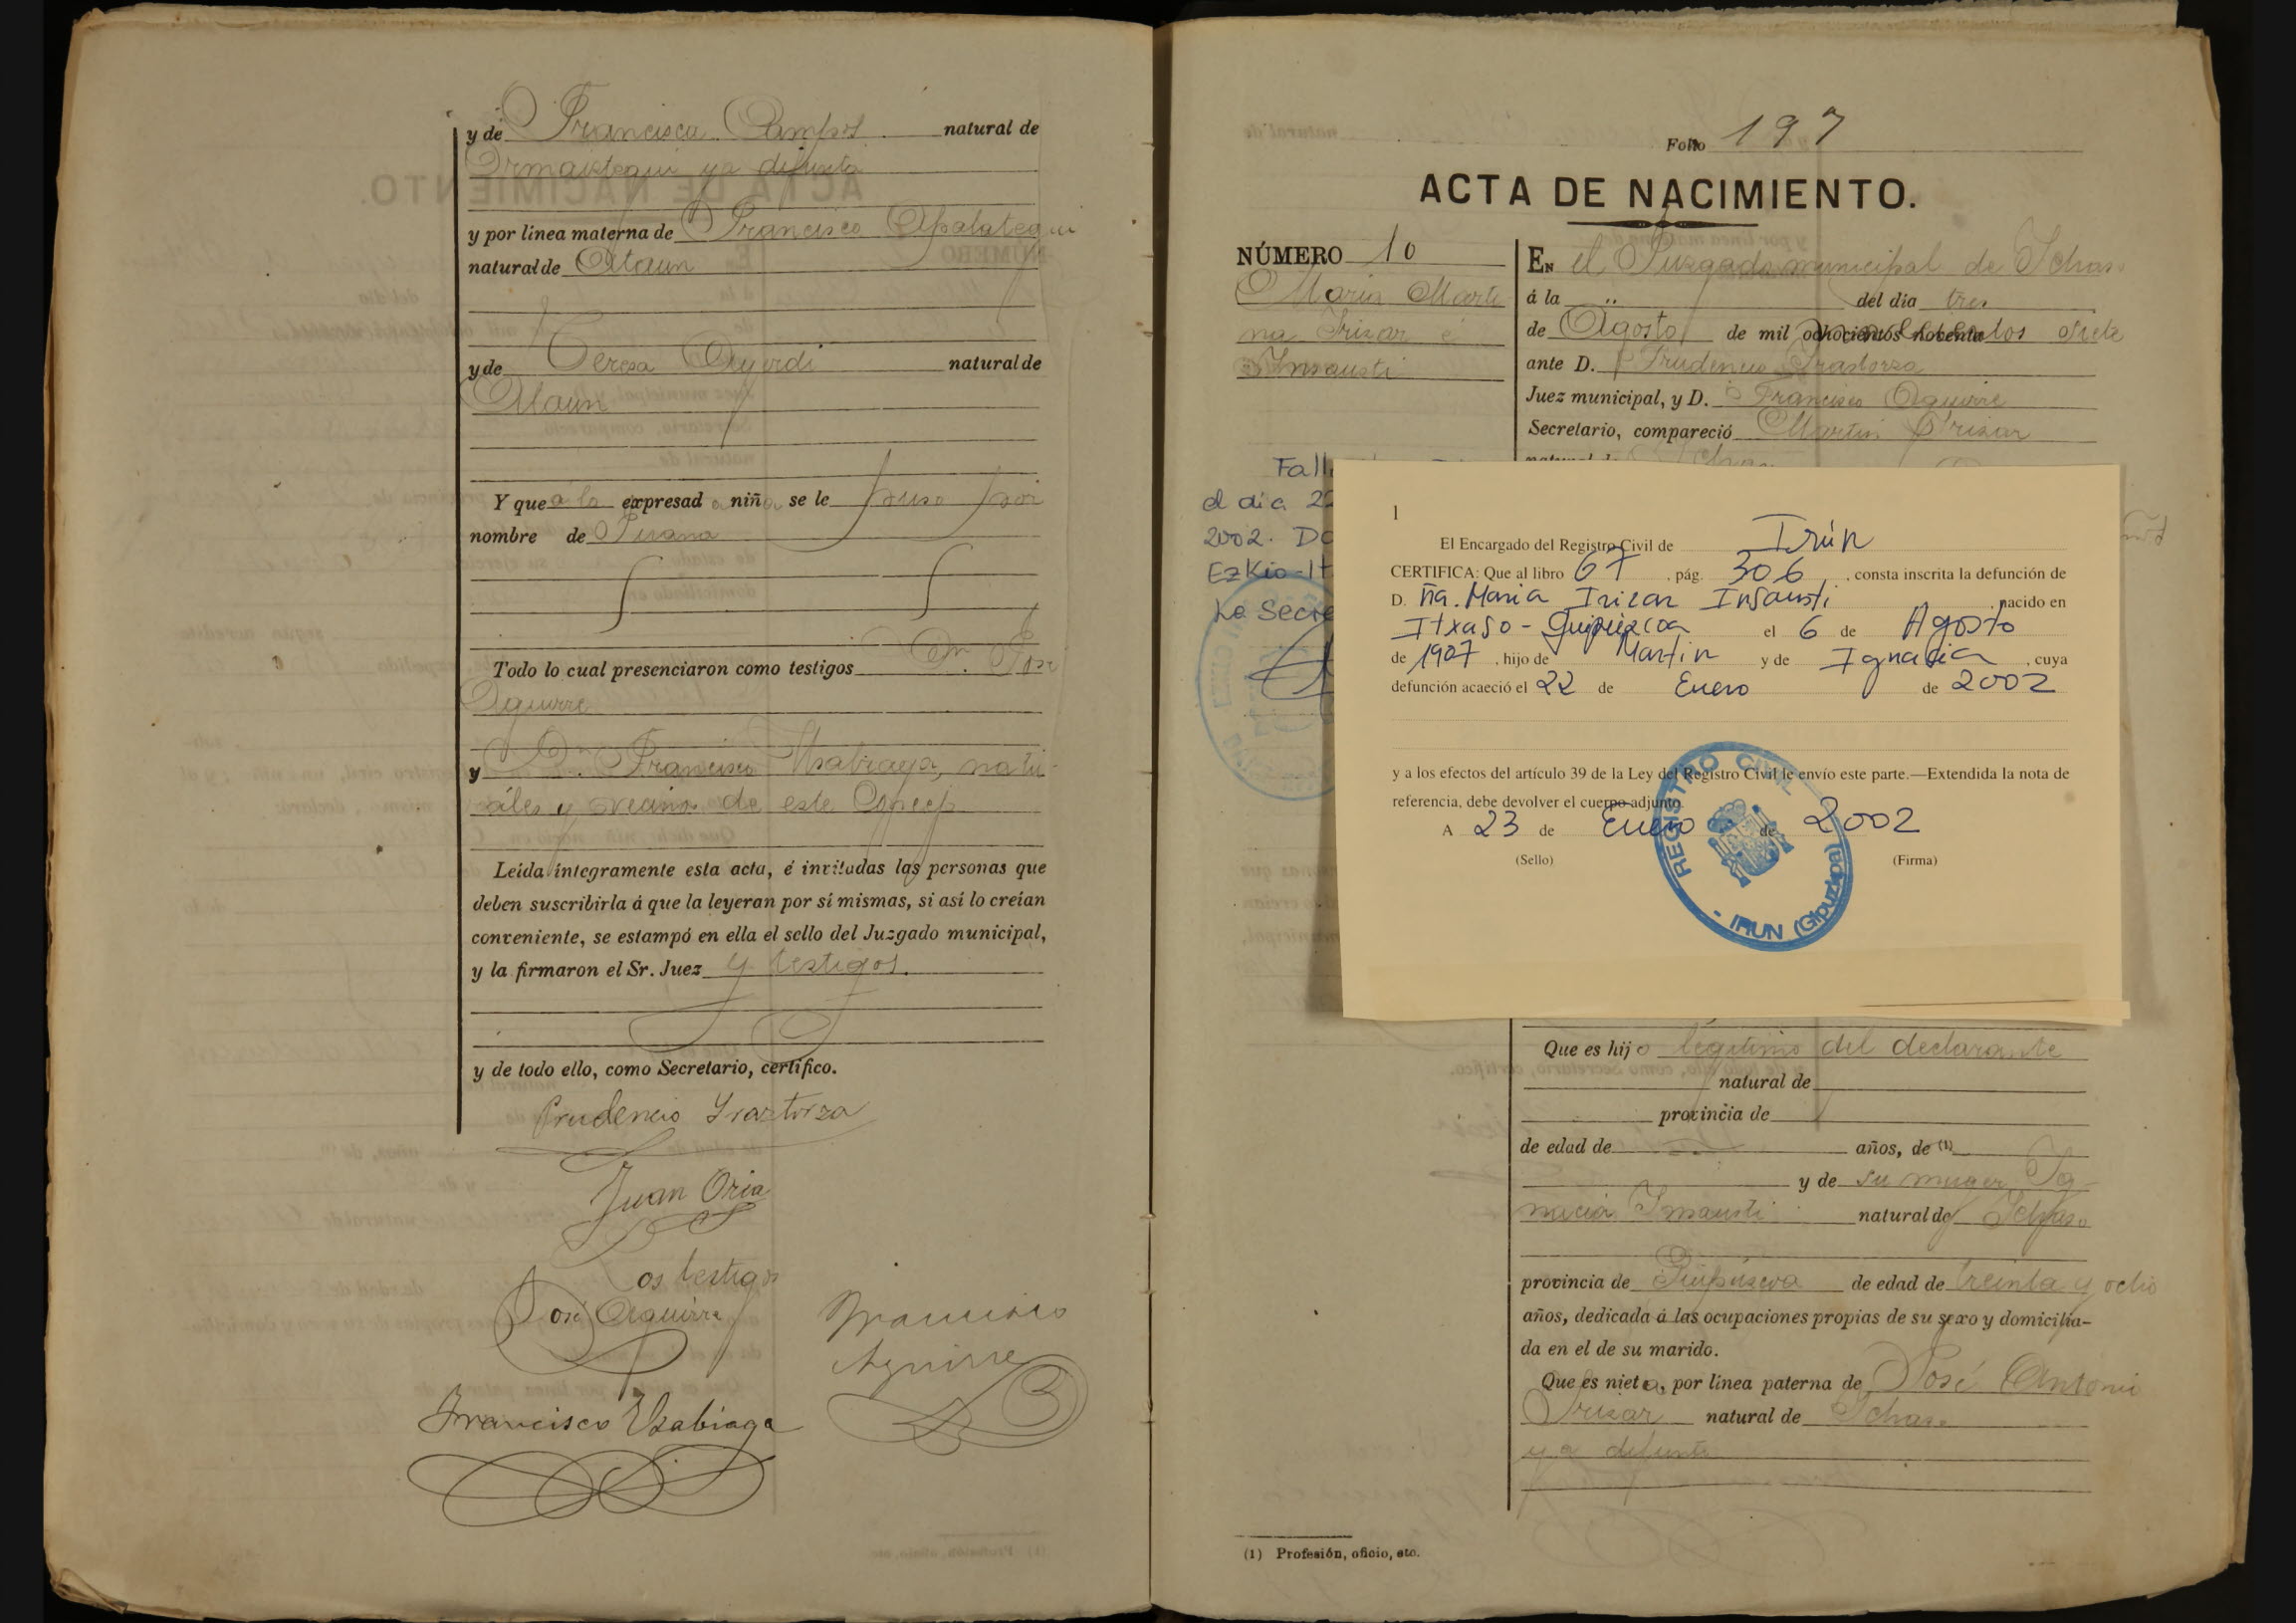 y de Francisca Campos natural de
Ormaiztegui ya difunta
y por línea materna de Francisco Apalategui
natural de Ataun
y de Teresa Ayerdi natural de
Ataun
Y que a la expresada niña se le puso por
nombre de Juana
Todo lo cual presenciaron como testigos Dn. José
Aguirre
y Dn. Francisco Usabiaga, natu-
rales y vecinos de este Concejo
Leída íntegramente esta acta, é invitadas las personas que
deben suscribirla á que la leyeran por sí mismas, si así lo creían
conveniente, se estampó en ella el sello del Juzgado municipal,
y la firmaron el Sr. Juez y testigos.
y de todo ello, como Secretario, certifico.
Prudencio Yraztorza
Juan Oria
Los testigos
José Aguirre
Francisco
Aguirre
Francisco Usabiaga
Folio 197
ACTA DE NACIMIENTO.
NÚMERO 10
Maria Marti
na Irizar é
Insausti
En el Juzgado municipal de Ichaso
á la " del día tres
de Agosto de mil ochocientos noventa novecientos siete
ante D. Prudencio Yraztorza
Juez municipal, y D. Francisco Aguirre
Secretario, compareció Martin Irizar
Fall
el día 22
2002. Do
Ezkio-It
La Secre
1
El Encargado del Registro Civil de Irún
CERTIFICA: Que al libro 67, pág. 306, consta inscrita la defunción de
D. ña. Maria Irizar Insausti, nacido en
Itxaso - Guipúzcoa el 6 de Agosto
de 1907, hijo de Martin y de Ignacia, cuya
defunción acaeció el 22 de Enero de 2002
y a los efectos del artículo 39 de la Ley del Registro Civil le envío este parte.—Extendida la nota de
referencia, debe devolver el cuerpo adjunto.
A 23 de Enero de 2002
(Sello) (Firma)
REGISTRO CIVIL
- IRUN (Gipuzkoa)
Que es hijo legitimo del declarante
natural de
provincia de
de edad de años, de (1)
y de su muger Ig
nacia Insausti natural de Ichaso
provincia de Guipuzcoa de edad de treinta y ocho
años, dedicada á las ocupaciones propias de su sexo y domicilia-
da en el de su marido.
Que es nieta, por línea paterna de José Antonio
Irizar natural de Ichaso
ya difunto
(1) Profesión, oficio, etc.